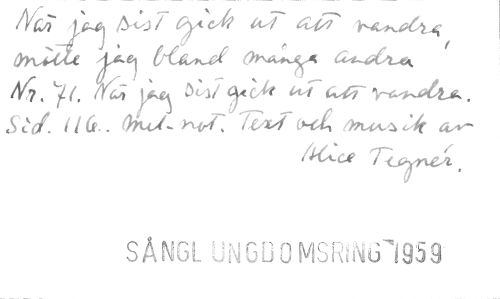 När jag sist gick ut att vandra,
mötte jag bland många andra
Nr. 71. När jag sist gick ut att vandra.
Sid. 116.. mel-not. Text och musik av
Alice Tegnér.
SÅNGL UNGDOMSRING 1959